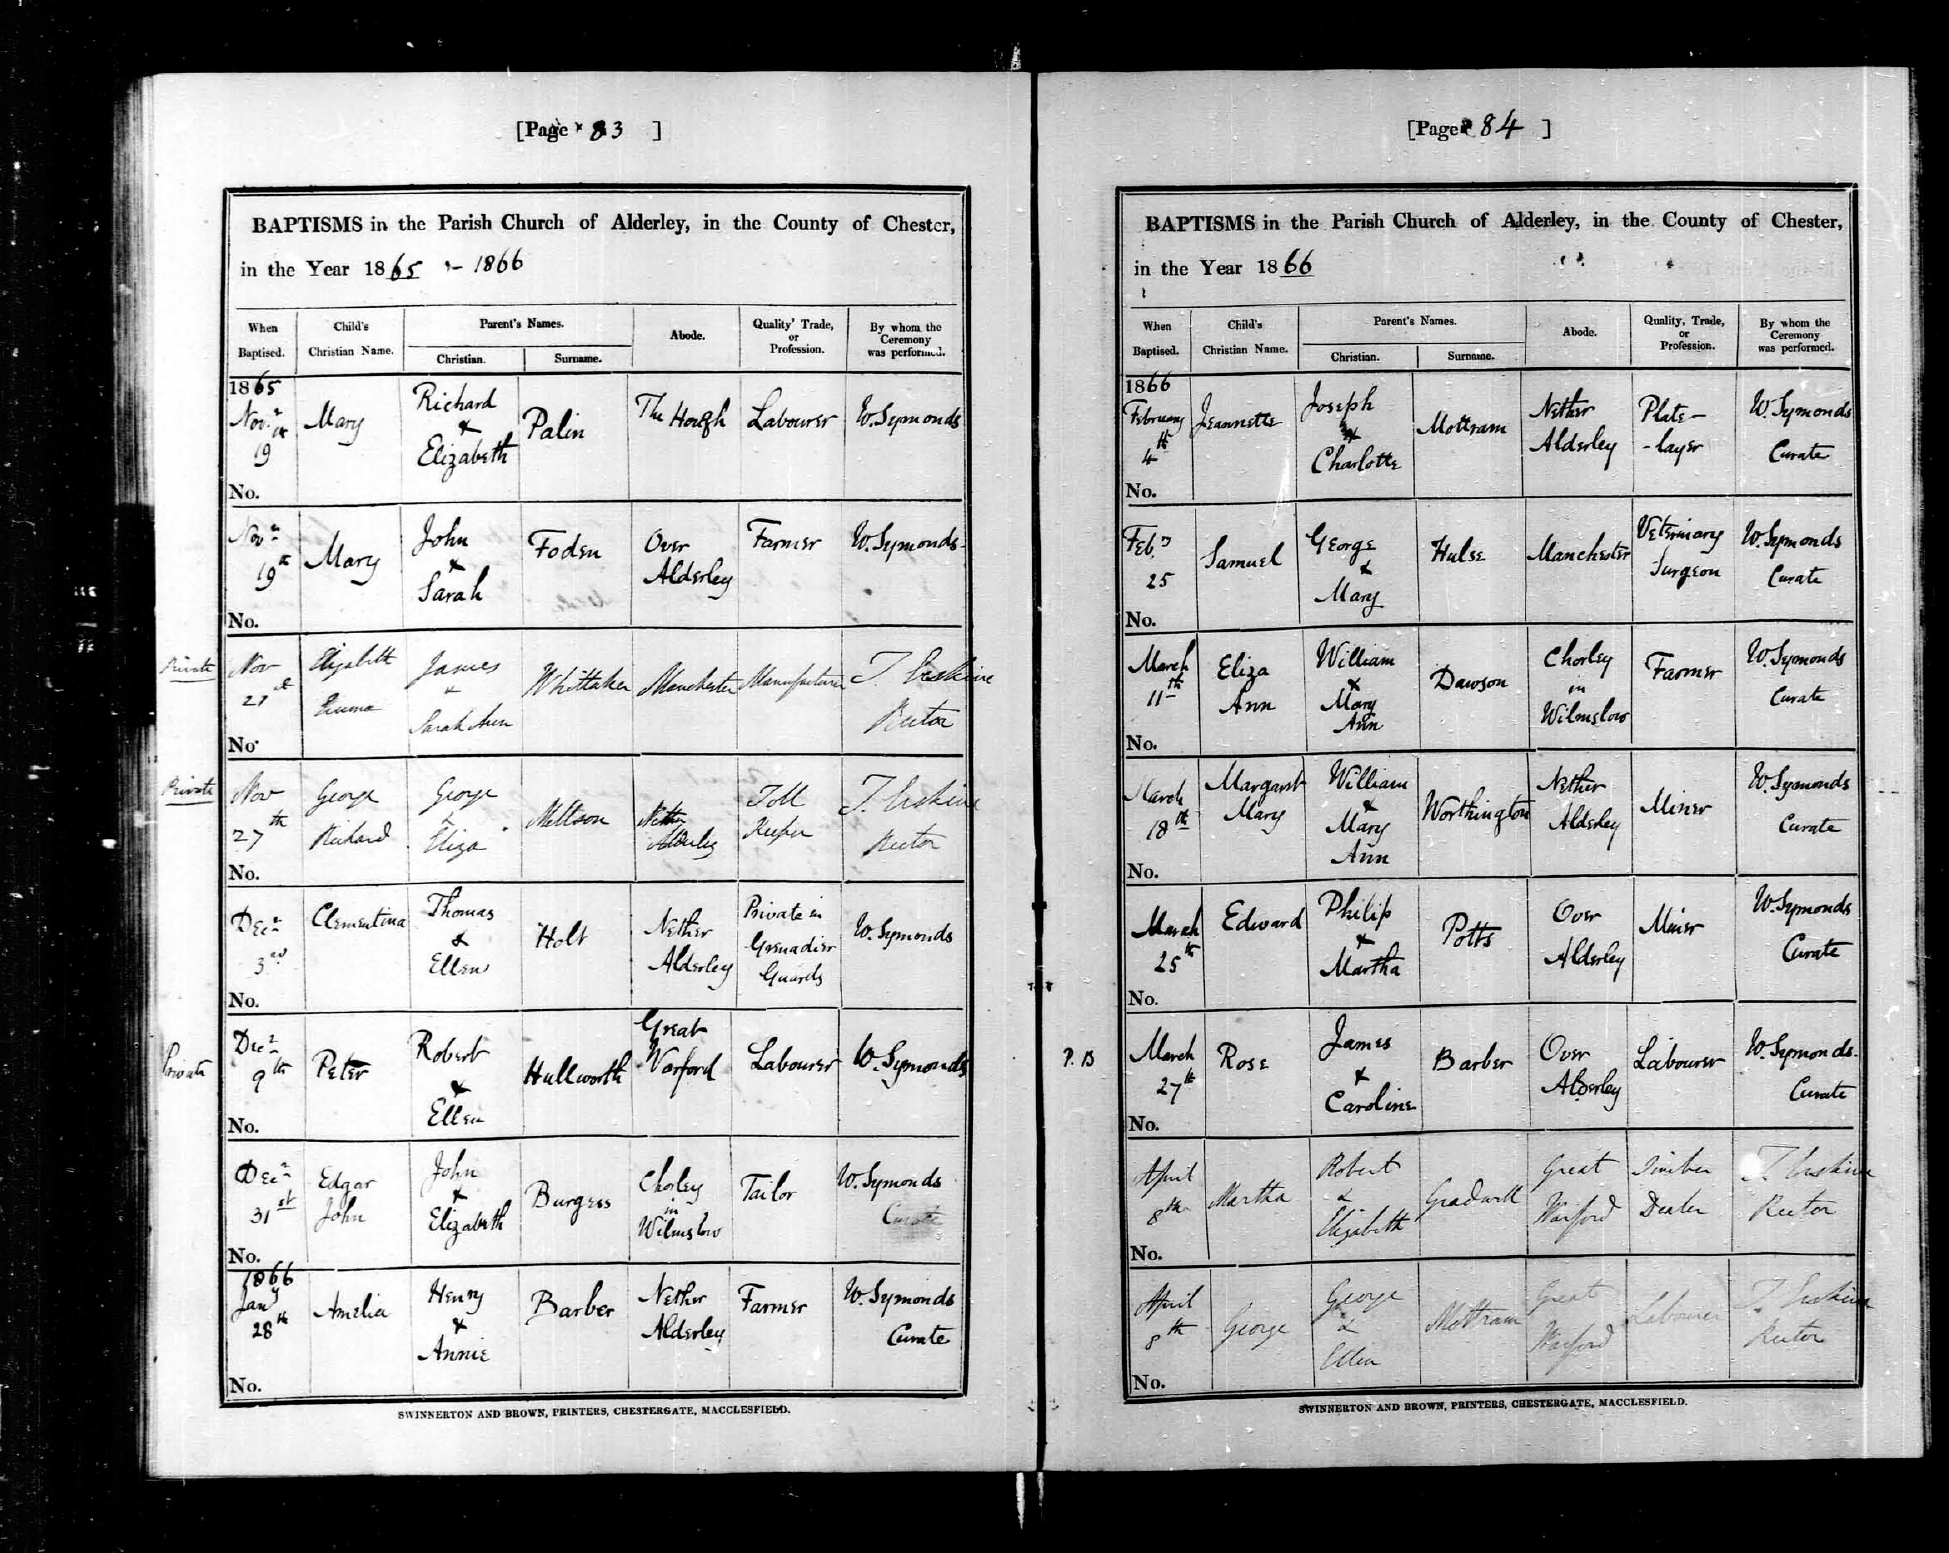 [Page 83 ]
BAPTISMS in the Parish Church of Alderley, in the County of Chester,
in the Year 1865 - 1866
When Baptised. Child's Christian Name. Parent's Names. Christian. Surname. Abode. Quality' Trade, or Profession. By whom the Ceremony was performed.
1865 Novr 19th Mary Richard & Elizabeth Palin The Hough Labourer W. Symonds
No.
Novr 19th Mary John & Sarah Foden Over Alderley Farmer W. Symonds
No.
Private Nov 21st Elizabeth Emma James & Sarah Ann Whittaker Manchester Manufacturer T. Erskine Rector
No.
Private Nov 27th George Richard George & Eliza Nether Alderley Toll Keeper T. Erskine Rector
No.
Decr 3rd Clementina Thomas & Ellen Holt Nether Alderley Private in Grenadier Guards W. Symonds
No.
Private Decr 9th Peter Robert & Ellen Hullworth Great Warford Labourer W. Symonds
No.
Decr 31st Edgar John John & Elizabeth Burgess Chorley in Wilmslow Tailor W. Symonds Curate
No.
1866 Jany 28th Amelia Henry & Annie Barber Nether Alderley Farmer W. Symonds Curate
No.
SWINNERTON AND BROWN, PRINTERS, CHESTERGATE, MACCLESFIELD.
[Page 84 ]
BAPTISMS in the Parish Church of Alderley, in the County of Chester,
in the Year 1866
When Baptised. Child's Christian Name. Parent's Names. Christian. Surname. Abode. Quality, Trade, or Profession. By whom the Ceremony was performed.
1866 February 4th Jeannette Joseph & Charlotte Mottram Nether Alderley Plate- -layer W. Symonds Curate
No.
Feby 25 Samuel George & Mary Hulse Manchester Veterinary Surgeon W. Symonds Curate
No.
March 11th Eliza Ann William & Mary Ann Dawson Chorley in Wilmslow Farmer W. Symonds Curate
No.
March 18th Margaret Mary William & Mary Ann Worthington Nether Alderley Miner W. Symonds Curate
No.
March 25th Edward Philip & Martha Potts Over Alderley Miner W. Symonds Curate
No.
P. B March 27th Rose James & Caroline Barber Over Alderley Labourer W. Symonds Curate
No.
April 8th Martha Robert & Elizabeth Gradwell Great Warford Timber Dealer T. Erskine Rector
No.
April 8th George George & Ellen Mottram Great Warford Labourer T. Erskine Rector
No.
SWINNERTON AND BROWN, PRINTERS, CHESTERGATE, MACCLESFIELD.